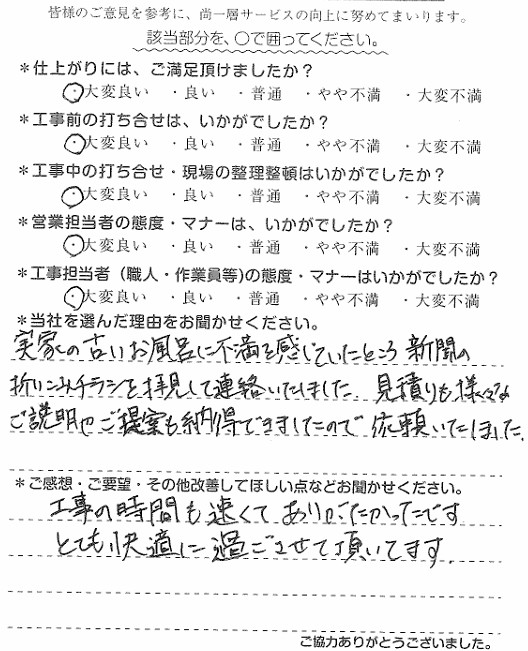 皆様のご意見を参考に、尚一層サービスの向上に努めてまいります。
該当部分を、○で囲ってください。
＊仕上がりには、ご満足頂けましたか？
・大変良い ・良い ・普通 ・やや不満 ・大変不満
＊工事前の打ち合せは、いかがでしたか？
・大変良い ・良い ・普通 ・やや不満 ・大変不満
＊工事中の打ち合せ・現場の整理整頓はいかがでしたか？
・大変良い ・良い ・普通 ・やや不満 ・大変不満
＊営業担当者の態度・マナーは、いかがでしたか？
・大変良い ・良い ・普通 ・やや不満 ・大変不満
＊工事担当者（職人・作業員等)の態度・マナーはいかがでしたか？
・大変良い ・良い ・普通 ・やや不満 ・大変不満
＊当社を選んだ理由をお聞かせください。
実家の古いお風呂に不満を感じていたところ新聞の
折りこみチラシを拝見して連絡いたしました 見積りも様々な
ご説明やご提案も納得できましたので依頼いたしました.
＊ご感想・ご要望・その他改善してほしい点などお聞かせください。
工事の時間も速くてありがたかったです
とても快適に過ごさせて頂いてます.
ご協力ありがとうございました。